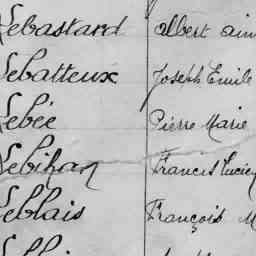 Lebastard albert aim
Lebatteux Joseph Emile
Lebée Pierre Marie
Lebihan Francis Lucien
Leblais François M